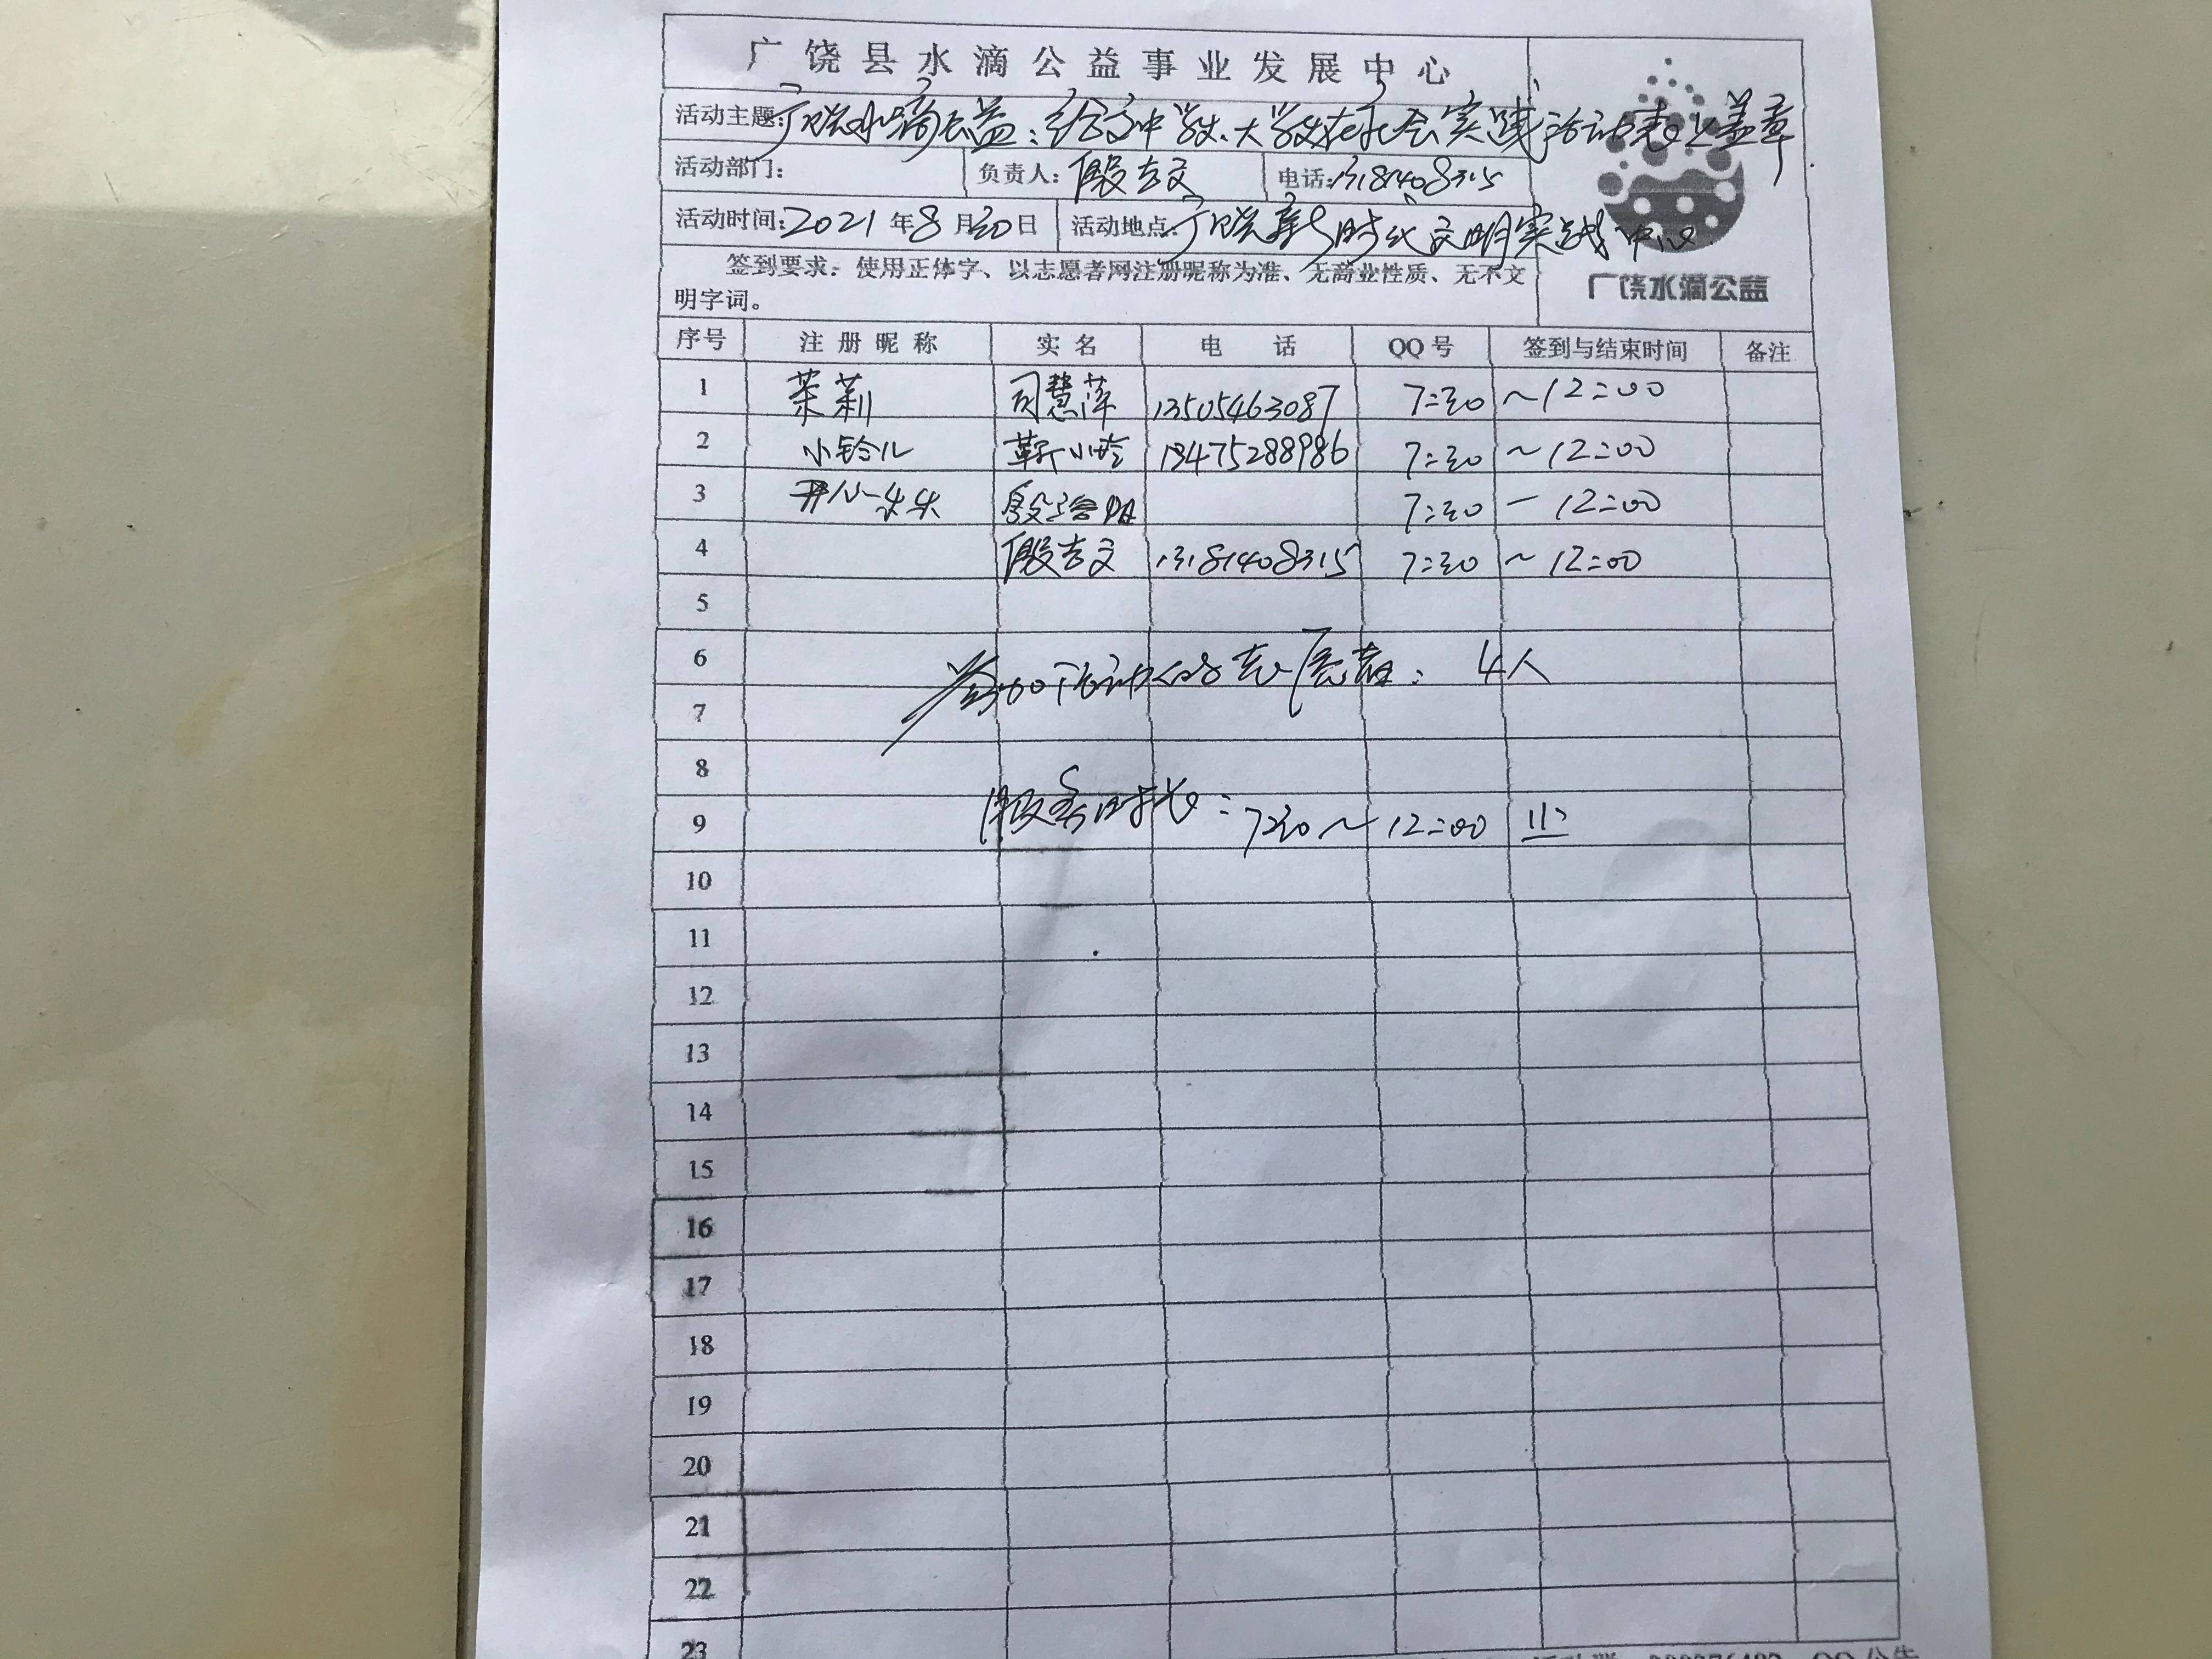 广饶县水滴公益事业发展中心
活动主题:广饶水滴公益:给文中学生、大学生在社会实践活动表上盖章
活动部门: 负责人:殷吉文 电话:13181408315
活动时间:2021年8月30日 活动地点:广饶新时代文明实践中心
签到要求:使用正体字、以志愿者网注册昵称为准、无商业性质、无不文
明字词。
广饶水滴公益
序号 注册昵称 实名 电话 QQ号 签到与结束时间 备注
1 茉莉 司慧萍 13505463087 7:30 ~12:00
2 小铃儿 靳小玲 13475288986 7:30 ~12:00
3 开心 殷 7:30 - 12:00
4 殷吉文 13181408315 7:30 ~ 12:00
5
6
参加活动的志愿者: 4人
7
8
服务时长:7:30~12:00
9
10
11
12
13
14
15
16
17
18
19
20
21
22
23
QQ公告